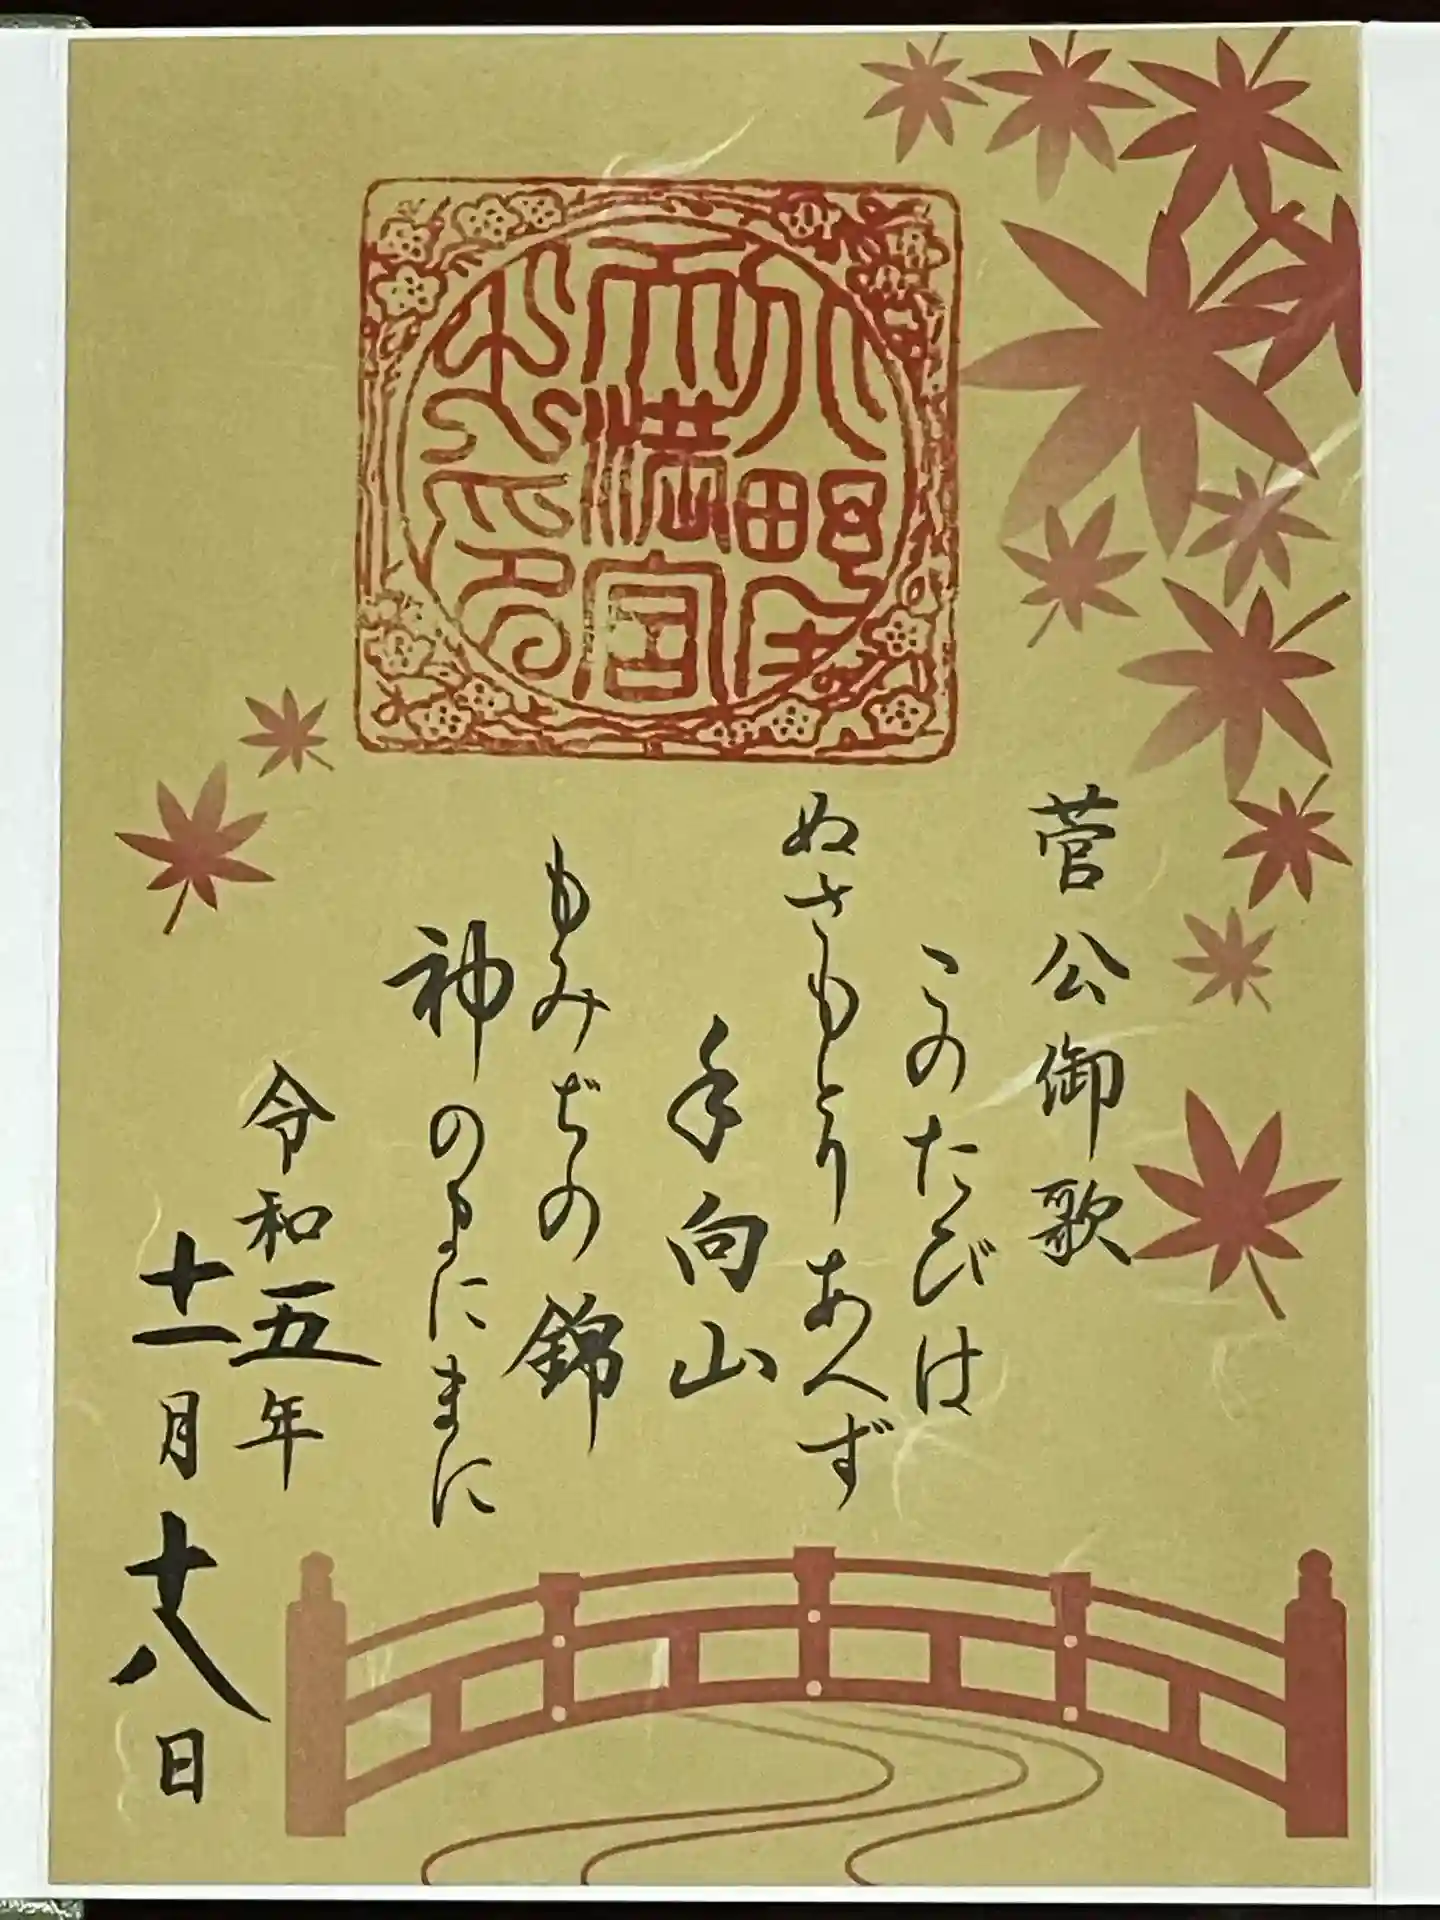 天満宮
菅公御歌
このたびは
ぬさもとりあへず
手向山
もみぢの錦
神のまにまに
令和五年
十一月十八日